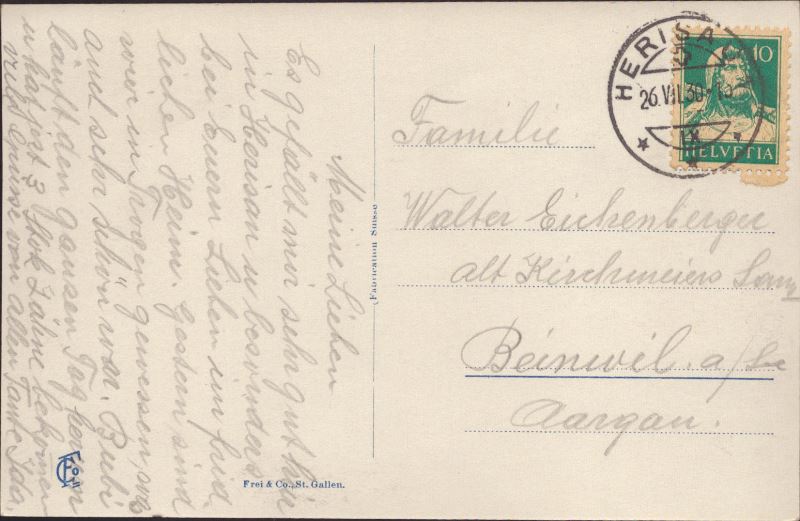 Meine Lieben
Es gefällt mir sehr gut hier
in Herisau u besonders
bei Euern Lieben im fried
lichen Heim. Gestern sind
wir in Trogen gewesen, wo
auch sehr schön war. Bubi
läuft den ganzen Tag herum
u hat jetzt 3 Stok Zähne bekommen
viele Grüsse von allen Tante Ida.
Fabrication Suisse
Frei & Co., St. Gallen.
HERISAU
26.VII.30
10
HELVETIA
Familie
Walter Eichenberger
alt Kirchmeiers Sohn
Beinwil a/See
Aargau.